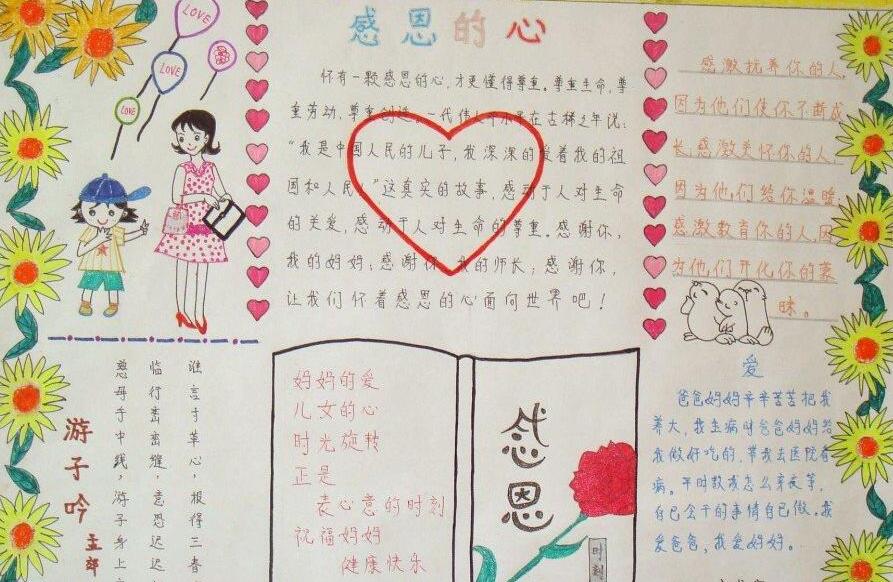 LOVE
LOVE
LOVE
感恩的心
怀有一颗感恩的心,才更懂得尊重。尊重生命,尊
重劳动,尊重创造。一代伟人邓小平在古稀之年说:
“我是中国人民的儿子,我深深的爱着我的祖
国和人民。”这真实的故事,感动于人对生命
的关爱,感动于人对生命的尊重。感谢你,
我的妈妈;感谢你,我的师长;感谢你,
让我们怀着感恩的心面向世界吧!
感激抚养你的人,
因为他们使你不断成
长,感激关怀你的人,
因为他们给你温暖
感激教育你的人,因
为他们开化你的蒙
昧。
游子吟
孟郊
慈母手中线,游子身上
临行密密缝,意恐迟迟
谁言寸草心,报得三春
妈妈的爱
儿女的心
时光旋转
正是
表心意的时刻
祝福妈妈
健康快乐
感恩
时刻
爱
爸爸妈妈辛辛苦苦把我
养大,我生病时爸爸妈妈给
我做好吃的,带我去医院看
病。平时教我怎么亲友等,
自己会干的事情自己做。我
爱爸爸,我爱妈妈。